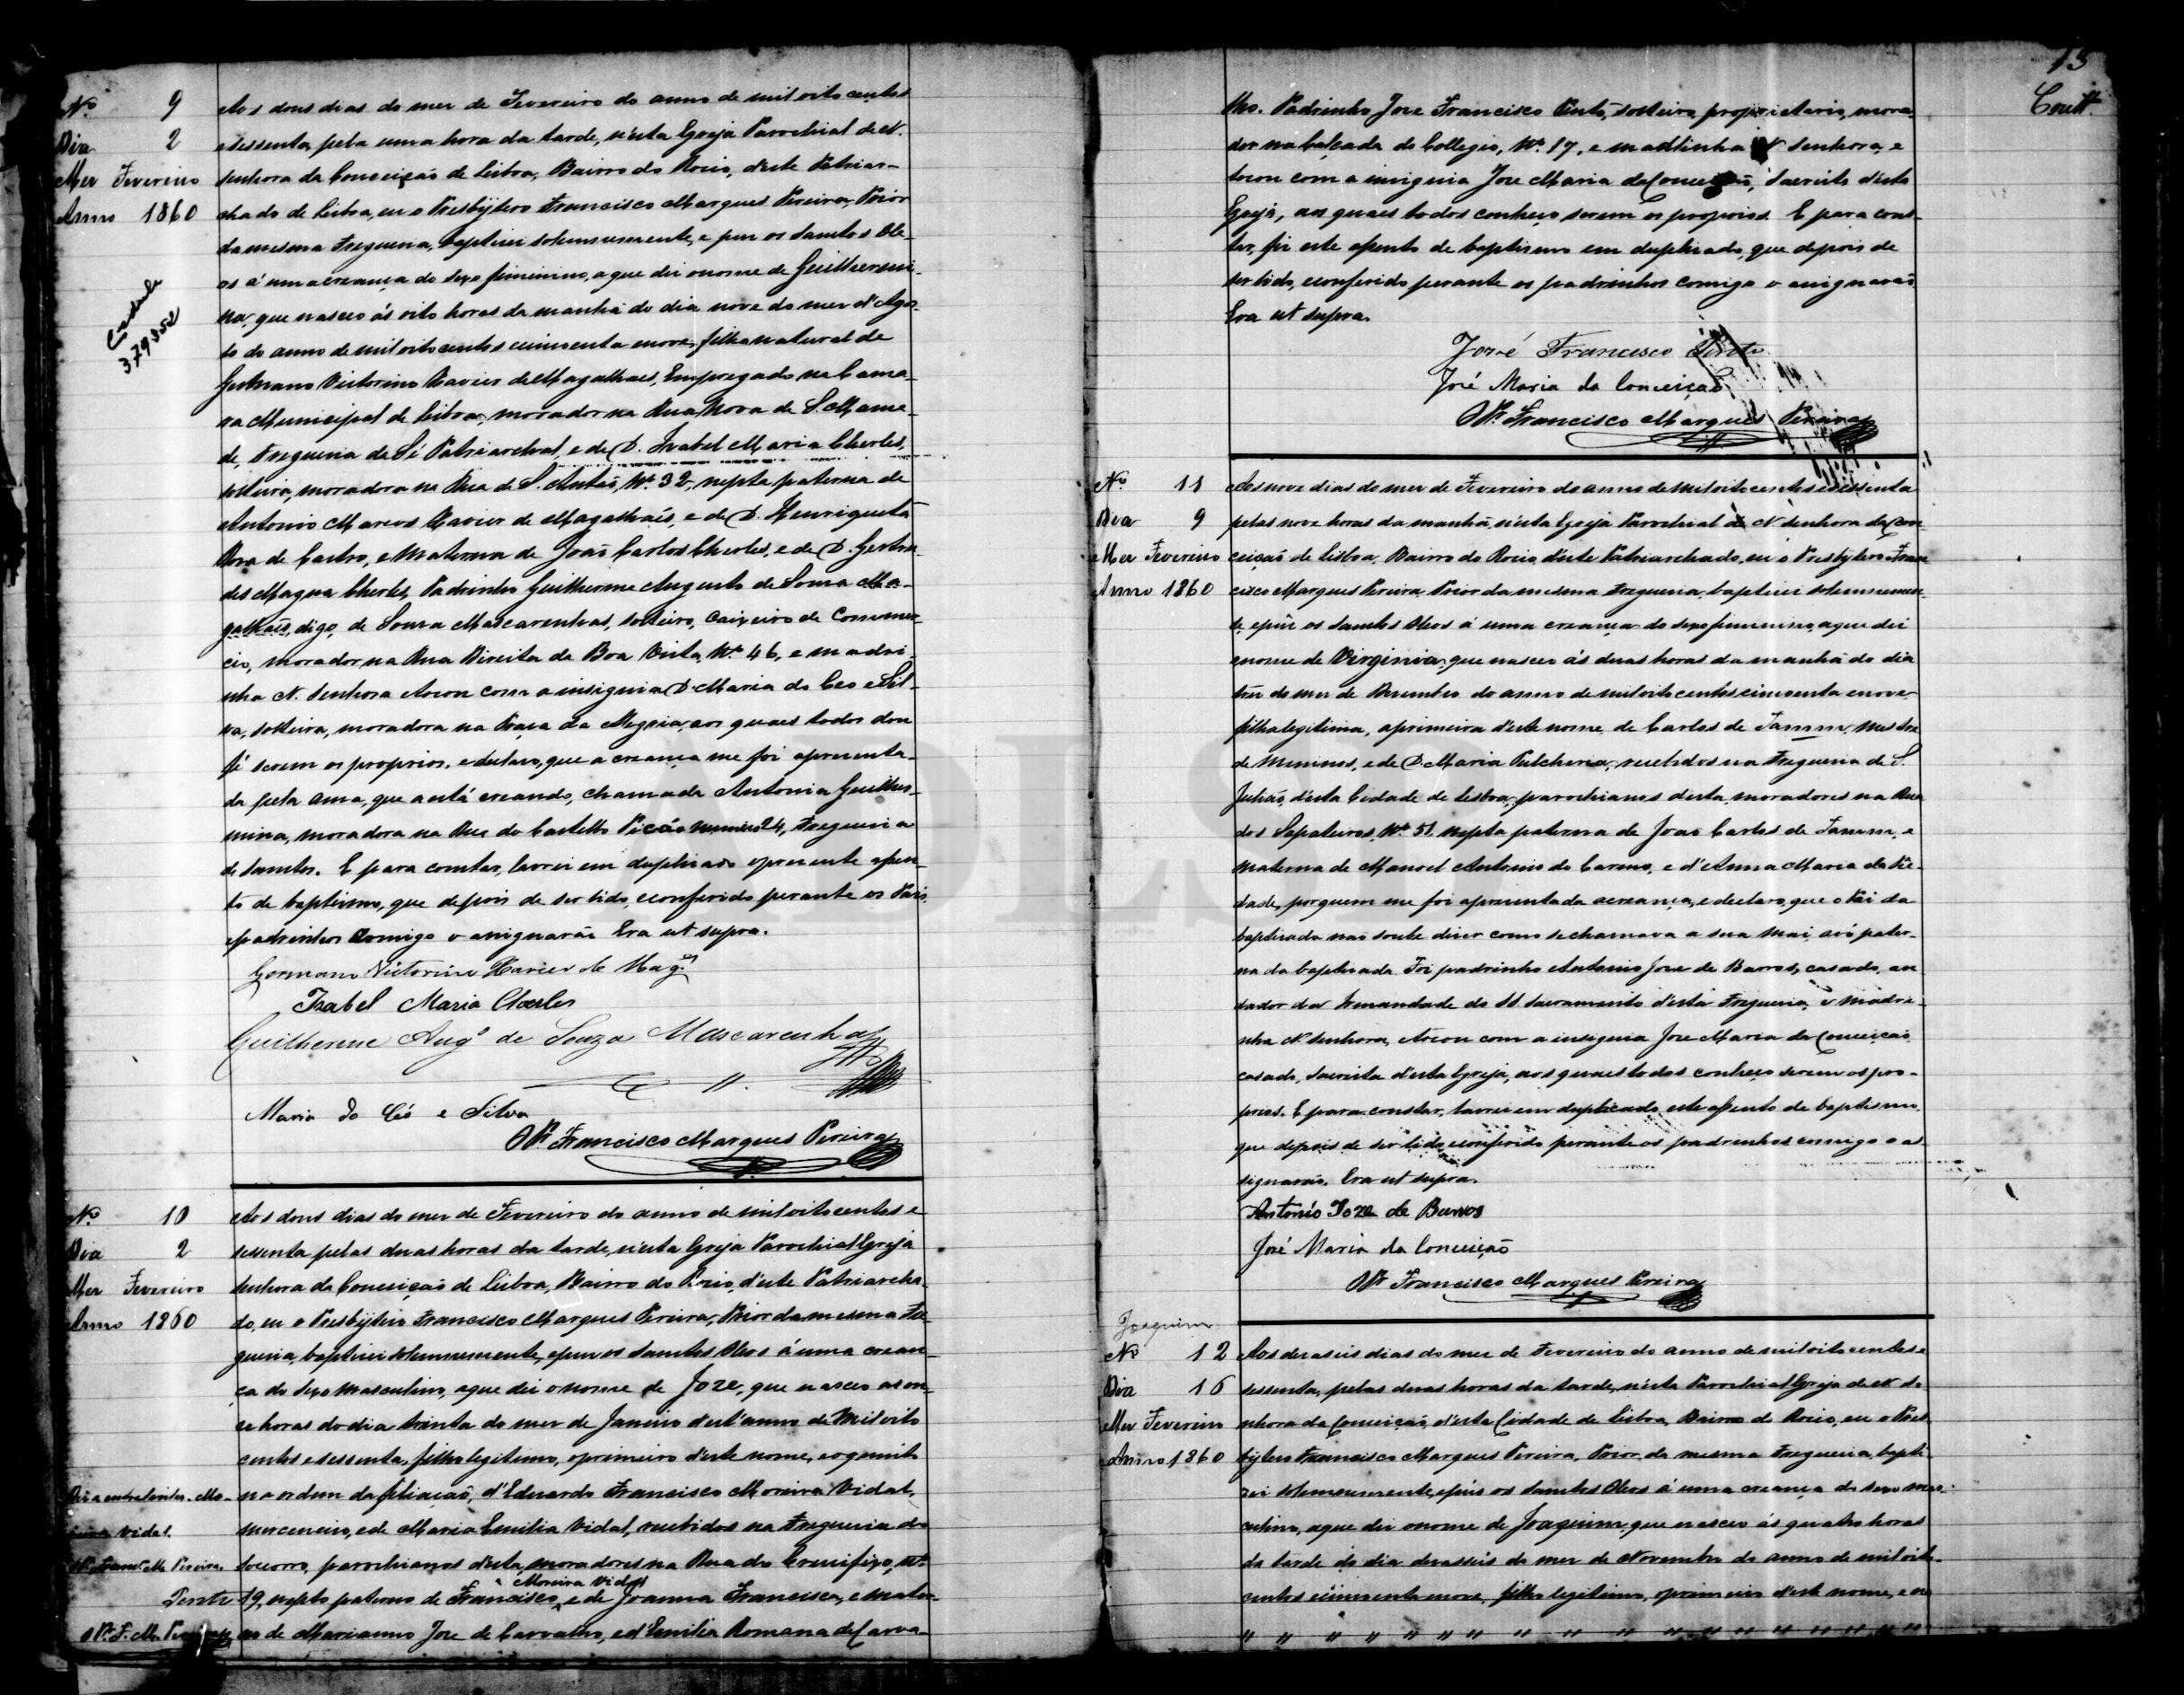 Nº 9
Dia 2
Mez Fevereiro
Anno 1860
Cedula
379352
Aos dous dias do mez de Fevereiro do anno de mil oito centos
e sessenta, pela uma hora da tarde, n'esta Igreja Parochial de N.
Senhora da Conceição de Lisboa, Bairro do Rocio, d'este Patriar-
chado de Lisboa, eu o Presbÿtero Francisco Marques Pereira, Prior
da mesma Freguezia, baptizei solemnemente, e puz os Santos Ole-
os á uma creança do sexo feminino, a que dei o nome de Guilhermi-
na, que nasceo ás oito horas da manhã do dia nove do mez d'Agos-
to do anno de mil oito centos cincoenta e nove, filha natural de
Germano Victorino Xavier de Magalhaes, Empregado na Cama-
ra Municipal de Lisboa, morador na Rua Nova de S. Mame-
de, Freguezia da Sé Patriarchal, e de D. Izabel Maria Cherles,
solteira, moradora na Rua de S. Antão, Nº 32, nepta paterna de
Antonio Marcos Xavier de Magalhaẽs, e de D. Henriqueta
Roza de Castro, e Materna de João Carlos Cherles, e de D. Gertru-
des Magna Cherles, Padrinho Guilherme Augusto de Souza Ma-
galhaẽs, digo, de Souza Mascarenhas, solteiro, Caixeiro de Commer-
cio, morador na Rua Direita da Boa Vista, Nº 46, e madri-
nha N. Senhora e tocou com a insignia D. Maria do Ceo e Sil-
va, solteira, moradora na Praça da Alegria, aos quaes todos dou
fé serem os proprios, e declaro, que a creança me foi aprezenta-
da pela ama, que a está creando, chamada Antonia Guilher-
mina, moradora na Rua do Castello Picão numero 24, Freguezia
de Santos. E para constar, lavrei em duplicado o prezente assen-
to de baptismo, que depois de ser lido, e conferido perante os Pais,
e padrinhos comigo o assignarão Era ut supra.
Germano Victorino Xavier de Mag.es
Izabel Maria Cherles
Guilherme Aug.º de Souza Mascarenhas
Maria do Céo e Silva
O Pr. Francisco Marques Pereira
Nº 10
Dia 2
Mez Fevereiro
Anno 1860
Aos dous dias do mez de Fevereiro do anno de mil oito centos e
sessenta pelas duas horas da tarde, n'esta Igreja Parochial Igreja
Senhora da Conceição de Lisboa, Bairro do Rocio, d'este Patriarcha-
do, eu o Presbÿtero Francisco Marques Pereira, Prior da mesma Fre-
guezia, baptizei solemnemente, e puz os Santos Oleos á uma crean-
ça do sexo Masculino, a que dei o nome de Joze, que nasceo as on-
ze horas do dia trinta do mez de Janeiro d'este anno de Mil oito
centos e sessenta, filho legitimo, o primeiro d'este nome, e o quinto
na ordem da filiação, d'Eduardo Francisco Moreira Vidal,
Marceneiro, e de Maria Emilia Vidal, recebidos na Freguezia do
Socorro, parochianos d'esta, moradores na Rua do Crucifixo, Nº
Moreira Vidal
19, nepto paterno de Francisco, e de Joanna Francisca, e mater-
no de Marianno Joze de Carvalho, e d'Emilia Romana de Carva-
Diz a entrelinha. Mo-
reira Vidal.
O Pr. Franc.co M. Pereira
O Pr. F. M. Pereira
13
Coutt.
lho. Padrinho Joze Francisco Pinto, solteiro, proprietario, mora-
dor na Calçada do Collegio, Nº 17, e madrinha N. Senhora, e
tocou com a insignia Joze Maria da Conceição, Sacrista d'esta
Igreja, aos quaes todos conheço serem os proprios. E para cons-
tar, fiz este assento de baptismo em duplicado, que depois de
ser lido, e conferido perante os padrinhos comigo o assignarão
Era ut supra.
José Francisco Pinto
José Maria da Conceição
O Pr. Francisco Marques Pereira
Nº 11
Dia 9
Mez Fevereiro
Anno 1860
Aos nove dias do mez de Fevereiro do anno de mil oito centos e sessenta
pelas nove horas da manhã, n'esta Igreja Parochial de N. Senhora da Con-
ceição de Lisboa, Bairro do Rocio, d'este Patriarchado, eu o Presbÿtero Fran-
cisco Marques Pereira, Prior da mesma Freguezia, baptizei solemnemen-
te, e puz os Santos Oleos á uma creança do sexo feminino, a que dei
o nome de Virginia, que nasceo ás duas horas da manhã do dia
trez do mez de Dezembro do anno de mil oito centos cincoenta e nove
filha legitima, a primeira d'este nome, de Carlos de Tamm, Mestre
de Meninos, e de D. Maria Pulcheria, recebidos na Freguezia de S.
Julião, d'esta Cidade de Lisboa, parochianos d'esta, moradores na Rua
dos Sapateiros, Nº 51, nepta paterna de Joao Carlos de Tamm, e
Materna de Manoel Antonio do Carmo, e d'Anna Maria da Pie-
dade, por quem me foi aprezentada a creança, e declaro, que o Pai da
baptizada nao soube dizer como se chamava a sua Mai, avó pater-
na da baptizada. Foi padrinho Antonio Joze de Barros, casado, an-
dador da Irmandade do SS. Sacramento d'esta Freguezia, e Madri-
nha N. Senhora, e tocou com a insignia Joze Maria da Conceição
casado, Sacrista d'esta Igreja, aos quaes todos conheço serem os pro-
prios. E para constar, lavrei em duplicado este assento de baptismo,
que depois de ser lido, e conferido perante os padrinhos comigo o as-
signarão. Era ut supra.
António Joze de Barros
José Maria da Conceição
O Pr. Francisco Marques Pereira
Joaquim
Nº 12
Dia 16
Mez Fevereiro
Anno 1860
Aos dezaseis dias do mez de Fevereiro do anno de mil oito centos e
sessenta, pelas duas horas da tarde, n'esta Parochial Igreja de N. Se-
nhora da Conceição, d'esta Cidade de Lisboa, Bairro do Rocio, eu o Pres-
bÿtero Francisco Marques Pereira, Prior da mesma Freguezia, bapti-
zei solemnemente, e puz os Santos Oleos á uma creança do sexo mas-
culino, a que dei o nome de Joaquim, que nasceo ás quatro horas
da tarde do dia dezasseis do mez de Novembro do anno de mil oito
centos cincoenta e nove, filho legitimo, o primeiro d'este nome, e na